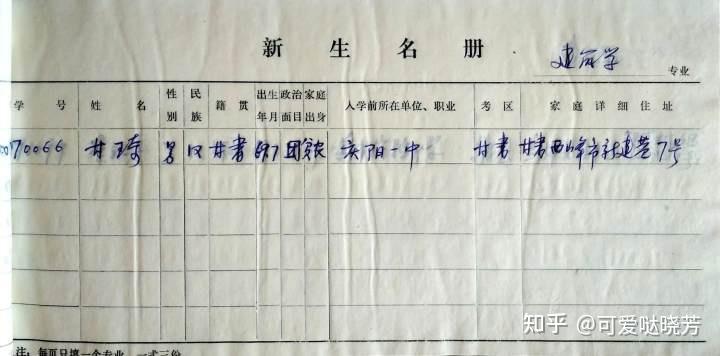 新生名册 建筑学 专业
学号 姓名 性别 民族 籍贯 出生年月 政治面目 家庭出身 入学前所在单位、职业 考区 家庭详细住址
0070066 甘 琦 男 汉 甘肃 69.7 团 农 庆阳一中 甘肃 甘肃西峰市 巷7号
注：每页只填一个专业，一式三份
知乎 @可爱哒晓芳